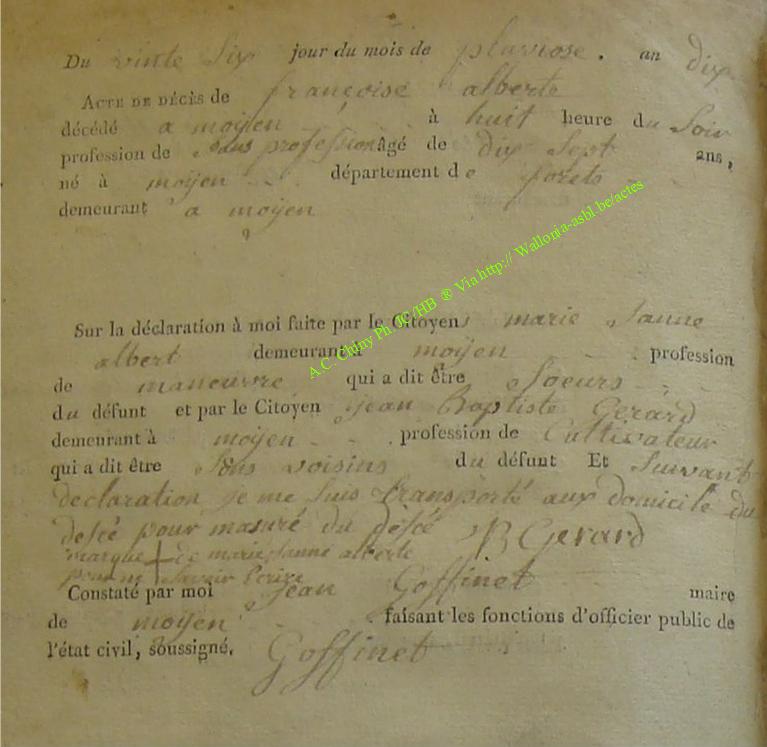 Du vinte six jour du mois de pluviose . an dix
ACTE DE DÉCÈS de françoise alberte
décédé a moÿen à huit heure du Soir
profession de sans profession âgé de dix Sept ans,
né à moÿen département de forets
demeurant a moÿen
Sur la déclaration à moi faite par le Citoyen marie Janne
albert demeurant à moÿen profession
de maneuvre qui a dit être Soeurs
du défunt et par le Citoyen jean Baptiste Gerard
demeurant à moÿen profession de Cultivateur
qui a dit être Sons voisins du défunt Et Suivant
declaration je me suis transporté aux domicile du
descé pour masuré du descé JB Gerard
marque + de marie Janne alberte
pour ne Savoir Ecrire
Constaté par moi jean Goffinet maire
de moÿen faisant les fonctions d'officier public de
l'état civil, soussigné. Goffinet
A.C. Chiny Ph JC/HB ® Via http:// Wallonia-asbl.be/actes